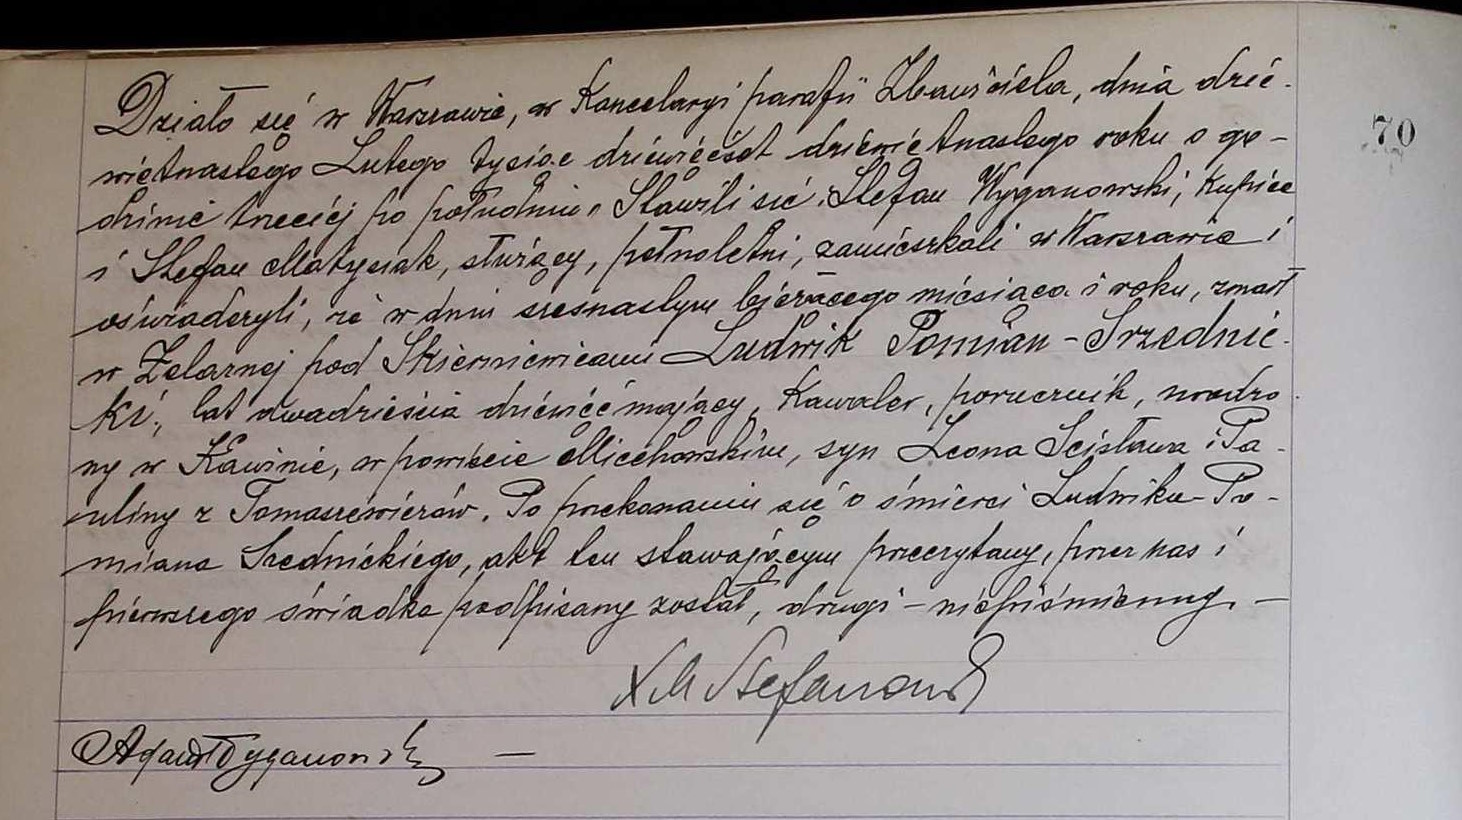 Działo się w Warszawie, w Kancelaryi parafii Zbawiciela, dnia dzie-
więtnastego Lutego tysiąc dziewięćset dziewiętnastego roku o go-
dzinie trzeciej po południu. Stawili się: Stefan Wyganowski, Kupiec
i Stefan Matysiak, służący, pełnoletni, zamieszkali w Warszawie i
oświadczyli, że w dniu szesnastym bieżącego miesiąca i roku, zmarł
w Żelaznej pod Skierniewicami Ludwik Pomian-Srzednic-
ki, lat dwadzieścia dziewięć mający, Kawaler, porucznik, urodzo-
ny w Kawinie, w powiecie Miechowskim, syn Leona Ścisława i Pa-
uliny z Tomaszewiczów. Po przekonaniu się o śmierci Ludwika Po-
miana Srednickiego, akt ten stawającym przeczytany, przez nas i
pierwszego świadka podpisany został, drugi – niepiśmienny. –
X. M Stefanowski
Wyganowski –
70